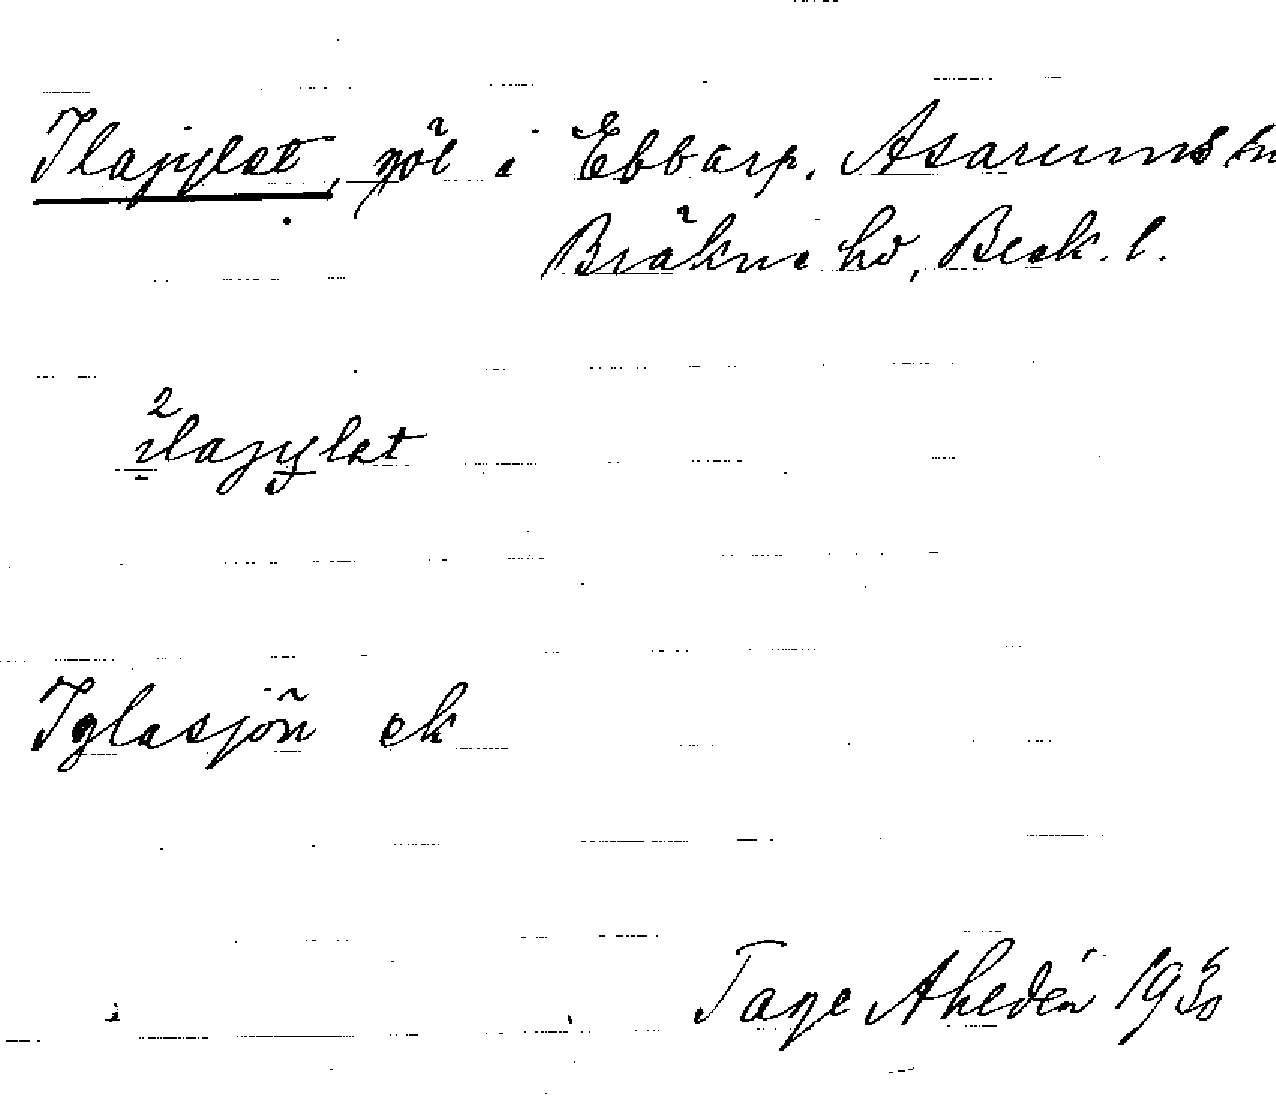 Ilagylet, göl i Ebbarp. Asarums sn
Bräkne hd, Blek. l.
2
ilagylet
Iglasjön ek
Tage Ahldén 1930